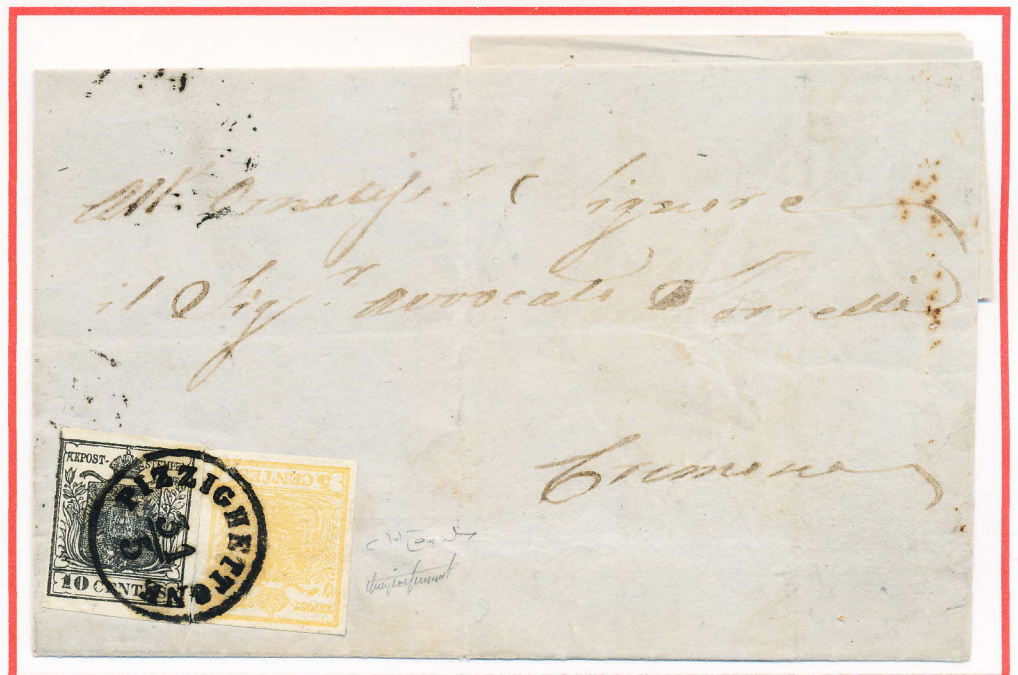 All' Ornatiss.º Signore
il Sig.r avvocato Torrelli
Cremona
KKPOST-STEMPEL
10 CENTES
PIZZIGHETTONE
5 CENTES
KKPOST